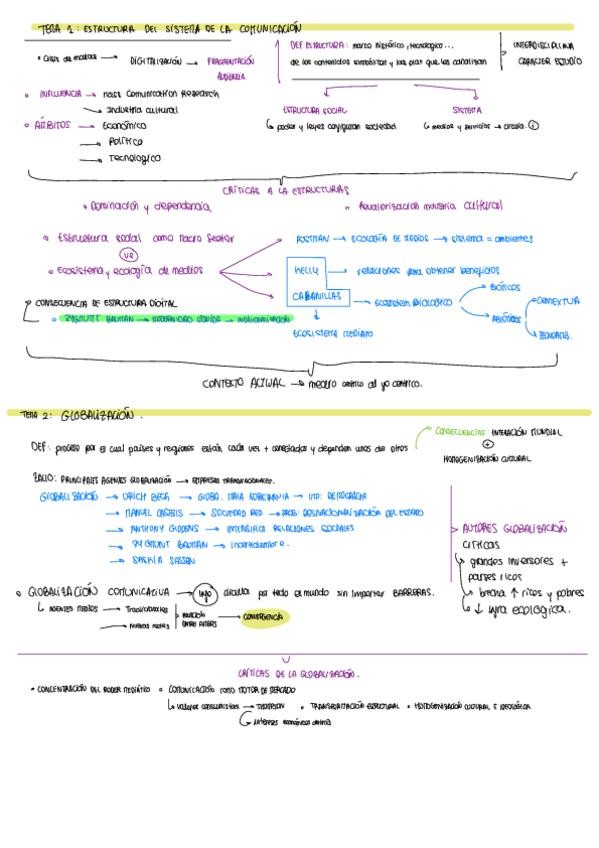 TEMA 1: ESTRUCTURA DEL SISTEMA DE LA COMUNICACIÓN
• Crisis de medios → DIGITALIZACIÓN → FRAGMENTACIÓN AUDIENCIA.
DEF ESTRUCTURA: marco histórico, tecnológico...
de los contenidos simbólicos y las plat que los canalizan
INTERDISCIPLINA
CARÁCTER ESTUDIO
• INFLUENCIA → Mass Comunication Research
→ Industria cultural
ESTRUCTURA SOCIAL
↳ poder y leyes configuran sociedad
SISTEMA
↳ medios y servicios → circula
• ÁMBITOS → Económico
→ Político
→ Tecnologico
CRÍTICAS A LA ESTRUCTURAS
• Dominación y dependencia
• industria cultural
• Estructura social como macro sector
VS
• Ecosistema y ecología de medios
POSTMAN → ECOLOGÍA DE MEDIOS → sistema = ambientes
KELLY → relaciones para obtener beneficios
CABANILLAS → Ecosistem Biologico
BIÓTICOS
ABIÓTICOS
CONTEXTUA
TECNOLOG.
ECOSISTEMA MEDIATO
CONSECUENCIA DE ESTRUCTURA DIGITAL
• ZYGMUNT BAUMAN → MODERNIDAD LÍQUIDA → INDIVIDUALIZACIÓN
CONTEXTO ACTUAL → medio centrico al yo centrico.
TEMA 2: GLOBALIZACIÓN.
DEF: proceso por el cual países y regiones están cada vez + conectados y dependen unos de otros
CONSECUENCIAS: INTERACIÓN MUNDIAL
+
HOMOGENIZACIÓN CULTURAL
ZALLO: PRINCIPALES AGENTES GLOBALIZACIÓN → EMPRESAS TRANSNACIONALES.
GLOBALIZACIÓN → ULRICH BECK → GLOBA. MINA SOBERANIA → DEMOCRACIA
→ MANUEL CASTELLS → SOCIEDAD RED → PROB: DESNACIONALIZACIÓN DEL ESTADO
→ ANTHONY GIDDENS → INTENSIFICA RELACIONES SOCIALES
→ ZYGMUNT BAUMAN → incertidumbre.
→ SASKIA SASSEN
AUTORES GLOBALIZACIÓN
CRITICAS
↳ grandes inversores +
países ricos
↳ brecha ↑ ricos y pobres
↳ ↓ ecologica.
• GLOBALIZACIÓN COMUNICATIVA → info circula por todo el mundo sin importar BARRERAS.
↳ AGENTES MEDIOS → Tradicionales
→ Nuevas redes
RELACIÓN
ENTRE AMBES
→ CONVERGENCIA
CRÍTICAS DE LA GLOBALIZACIÓN.
• CONCENTRACIÓN DEL PODER MEDIÁTICO • COMUNICACIÓN COMO MOTOR DE MERCADO
↳ valores consumistas → THOMPSON • TRANSFORMACIÓN ESTRUCTURAL • HOMOGENIZACIÓN CULTURAL E IDEOLÓGICA
↳ intereses económicos